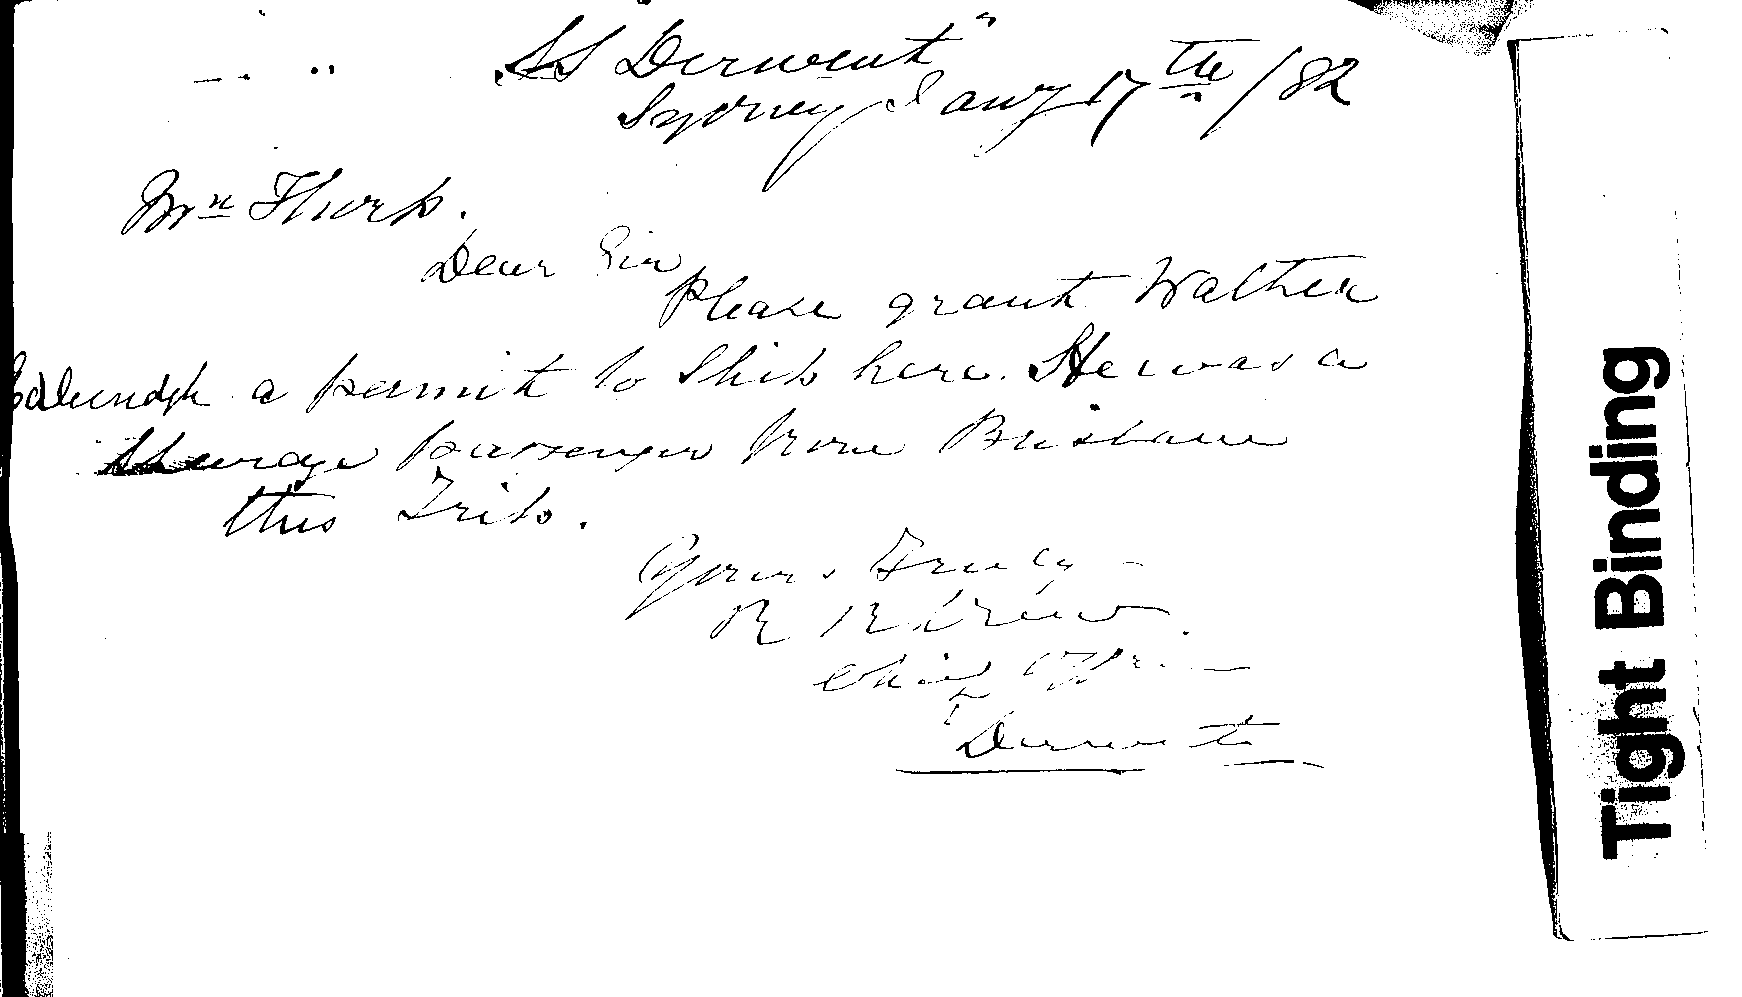 SS Derwent"
Sydney Jany 17th /82
Mr Thorp.
Dear Sir
Please grant Walther
a permit to Ship here. He was a
steerage passenger from Brisbane
this Trip.
Yours Truly
R R
Chief Officer
Derwent
Tight Binding